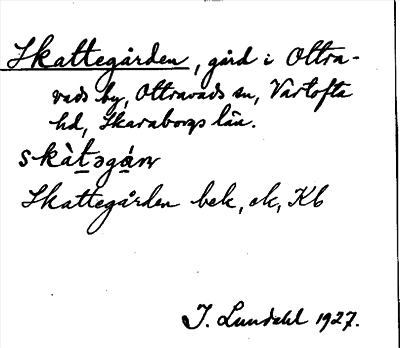 Skattegården, gård i Ottra-
vads by, Ottravads sn, Vartofta
hd, Skaraborgs län.
skàt̲əgá̲ɳ
Skattegården bek, ek, Kb
J. Lundahl 1927.